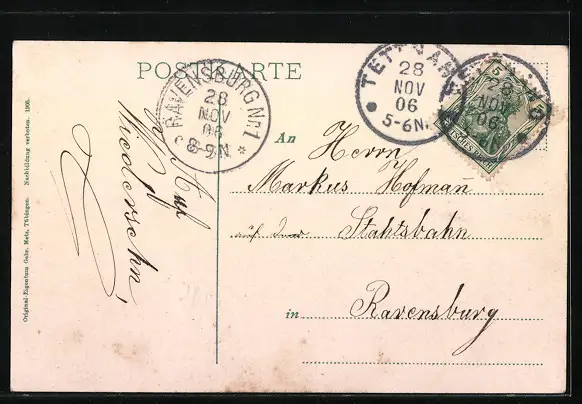 POSTKARTE
RAVENSBURG No 1
28
NOV
06
8-9N
TETTNANG
28
NOV
06
5-6N.
TETTNANG
28
NOV
06
5
Auf
Wiedersehn!
An
Herrn
Markus Hofmann
auf der
Stahtsbahn
in
Ravensburg
Original-Eigentum Gebr. Metz, Tübingen. Nachbildung verboten. 1906.